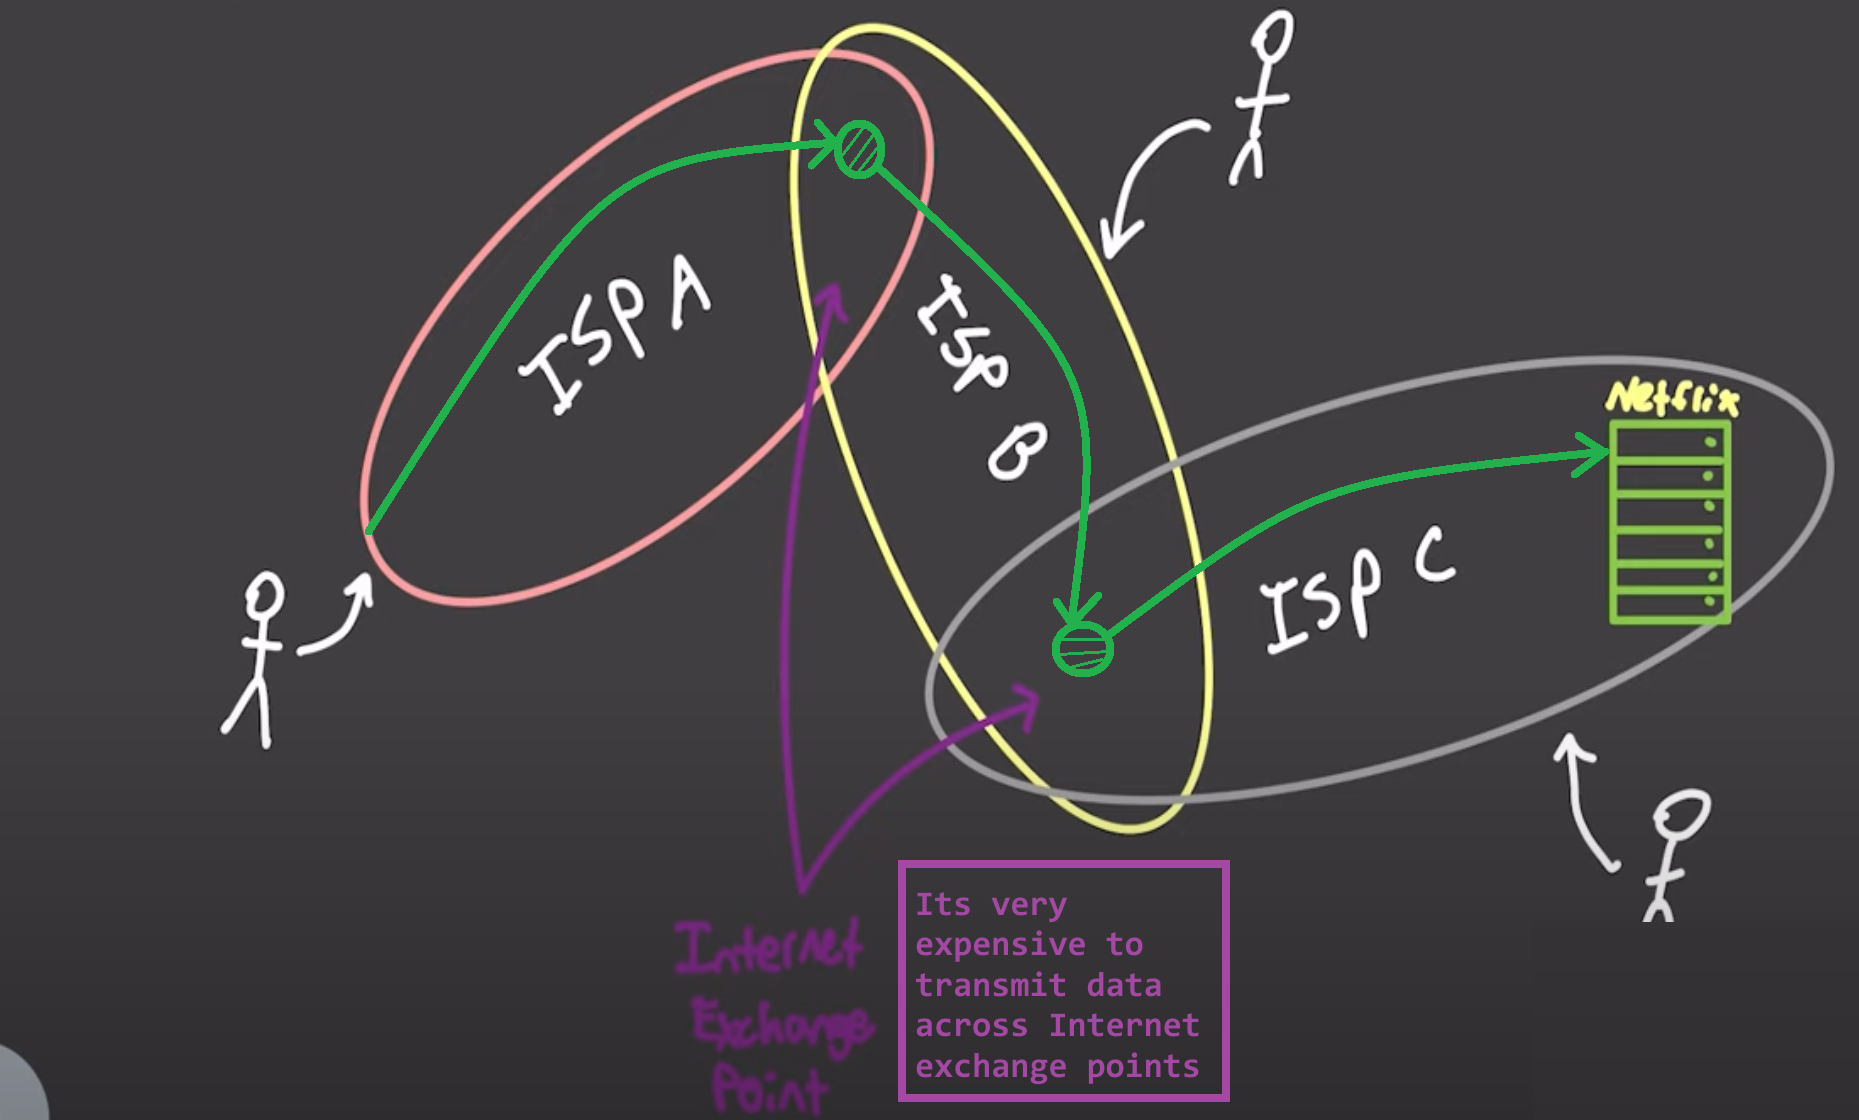 ISP A
ISP B
Netflix
ISP C
Internet
Exchange
Point
Its very
expensive to
transmit data
across Internet
exchange points